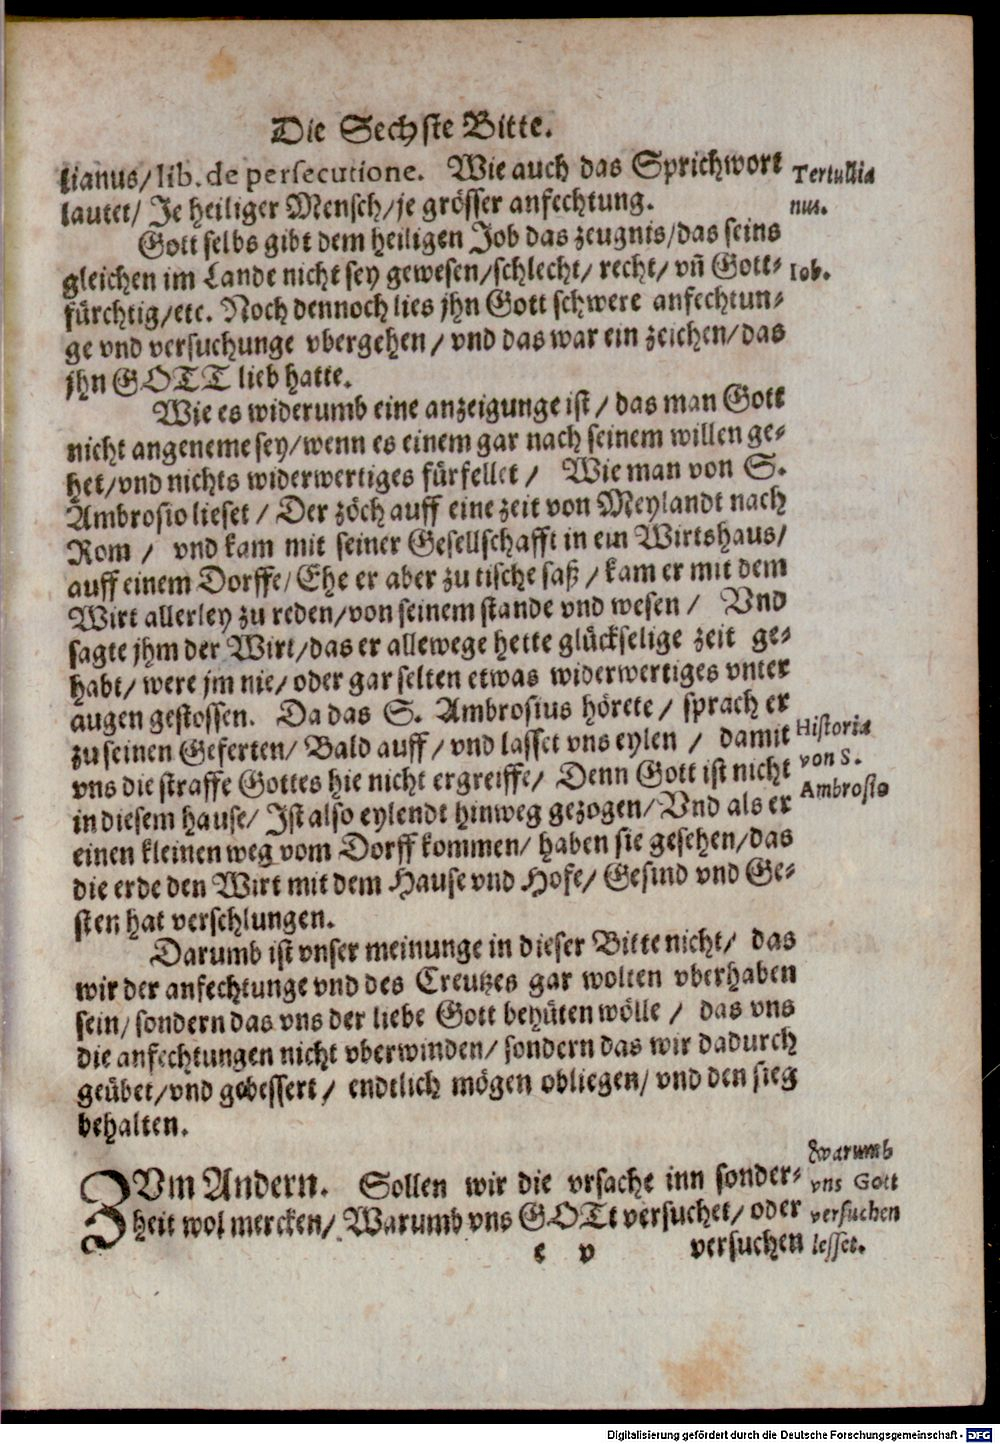 Die Sechste Bitte.
lianus/ lib. de persecutione. Wie auch das Sprichwort
lautet/ Je heiliger Mensch/ je grösser anfechtung.
Tertullia
nus.
Gott selbs gibt dem heiligen Job das zeugnis/ das seins
gleichen im Lande nicht sey gewesen/ schlecht/ recht/ vñ Gott-
Iob.
fürchtig/ etc. Noch dennoch lies jhn Gott schwere anfechtun-
ge vnd versuchunge vbergehen/ vnd das war ein zeichen/ das
jhn GOTT lieb hatte.
Wie es widerumb eine anzeigunge ist/ das man Gott
nicht angeneme sey/ wenn es einem gar nach seinem willen ge-
het/ vnd nichts widerwertiges fürfellet/ Wie man von S.
Ambrosio lieset/ Der zöch auff eine zeit von Meylandt nach
Rom/ vnd kam mit seiner Gesellschafft in ein Wirtshaus/
auff einem Dorffe/ Ehe er aber zu tische saß/ kam er mit dem
Wirt allerley zu reden/ von seinem stande vnd wesen/ Vnd
sagte jhm der Wirt/ das er allewege hette glückselige zeit ge-
habt/ were jm nie/ oder gar selten etwas widerwertiges vnter
augen gestossen. Da das S. Ambrosius hörete/ sprach er
zu seinen Geferten/ Bald auff/ vnd lasset vns eylen/ damit
vns die straffe Gottes hie nicht ergreiffe/ Denn Gott ist nicht
Historia
von S.
Ambrosio
in diesem hause/ Ist also eylendt hinweg gezogen/ Vnd als er
einen kleinen weg vom Dorff kommen/ haben sie gesehen/ das
die erde den Wirt mit dem Hause vnd Hofe/ Gesind vnd Ge-
sten hat verschlungen.
Darumb ist vnser meinunge in dieser Bitte nicht/ das
wir der anfechtunge vnd des Creutzes gar wolten vberhaben
sein/ sondern das vns der liebe Gott behüten wölle/ das vns
die anfechtungen nicht vberwinden/ sondern das wir dadurch
geübet/ vnd gebessert/ endtlich mögen obliegen/ vnd den sieg
behalten.
ZVm Andern. Sollen wir die vrsache inn sonder-
heit wol mercken/ Warumb vns GOTt versuchet/ oder
warumb
vns Gott
versuchen
lesset.
c v
versuchen
Digitalisierung gefördert durch die Deutsche Forschungsgemeinschaft - DFG